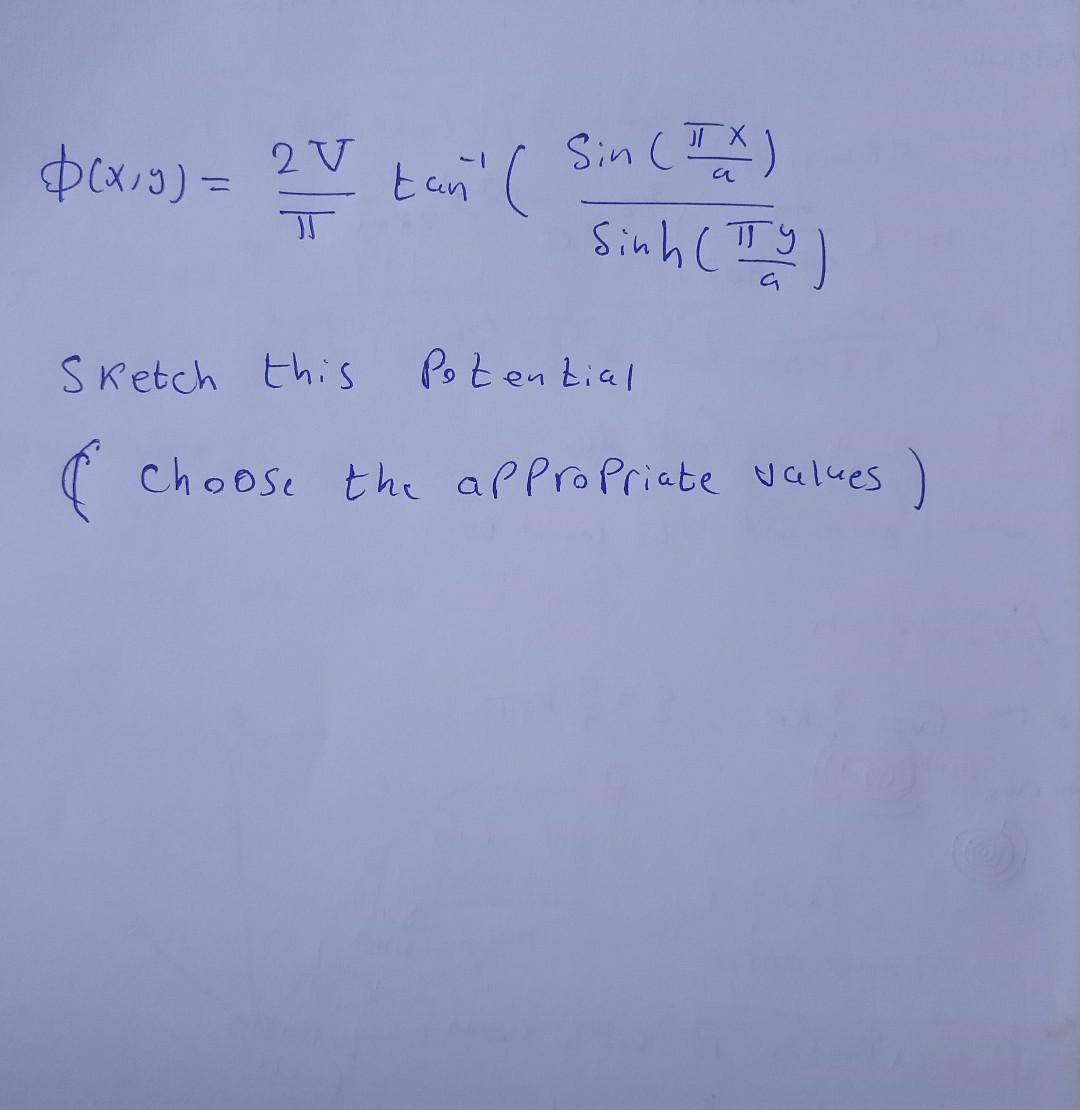 Φ(x,y) = 2V/π tan⁻¹ ( Sin(πx/a) / Sinh(πy/a) )
Sketch this Potential
( choose the appropriate values )